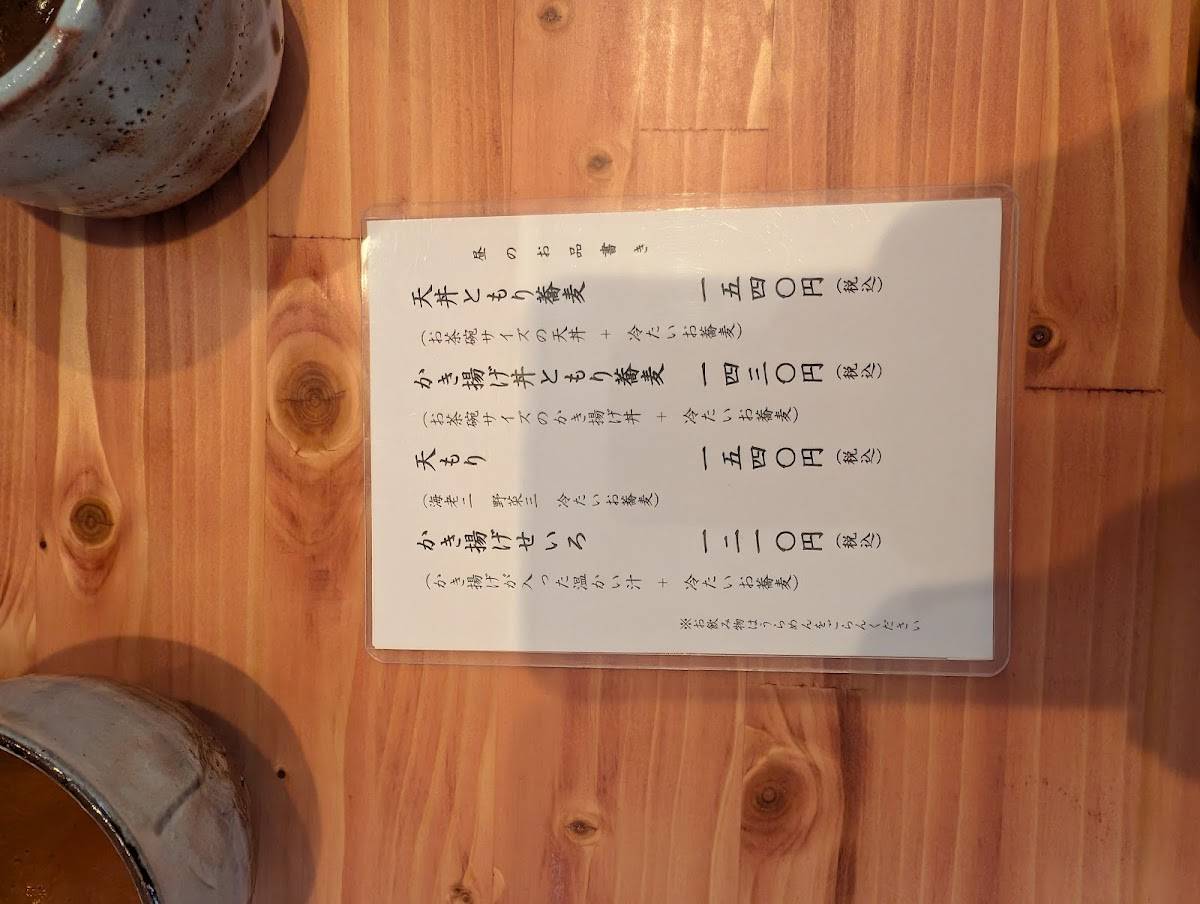 昼のお品書き
天丼ともり蕎麦 一五四〇円(税込)
(お茶碗サイズの天丼 + 冷たいお蕎麦)
かき揚げ丼ともり蕎麦 一四三〇円(税込)
(お茶碗サイズのかき揚げ丼 + 冷たいお蕎麦)
天もり 一五四〇円(税込)
(海老二 野菜三 冷たいお蕎麦)
かき揚げせいろ 一二一〇円(税込)
(かき揚げが入った温かい汁 + 冷たいお蕎麦)
※お飲み物はうらめんをごらんください